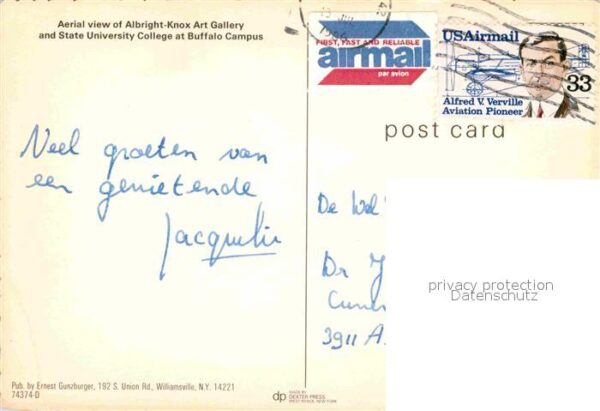 Aerial view of Albright-Knox Art Gallery
and State University College at Buffalo Campus
FIRST, FAST AND RELIABLE
airmail
par avion
USAirmail
33
Alfred V. Verville
Aviation Pioneer
post card
Veel groeten van
een genietende
Jacquelin
De Wel
Dr J
3911 A
privacy protection
Datenschutz
Pub. by Ernest Gunzburger, 192 S. Union Rd., Williamsville, N.Y. 14221
74374-D
dp
MADE BY
DEXTER PRESS
WEST NYACK, NEW YORK